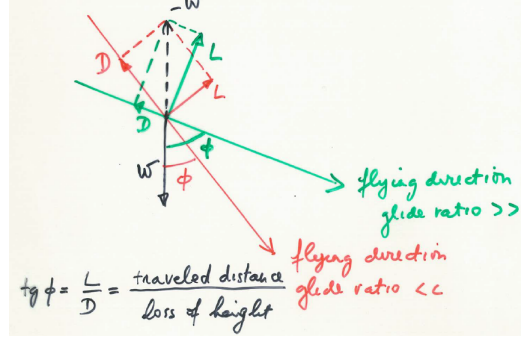 -W
D
L
L
D
W
φ
φ
flying direction
glide ratio >>
flying direction
glide ratio <<
tg φ = L/D = traveled distance / loss of height